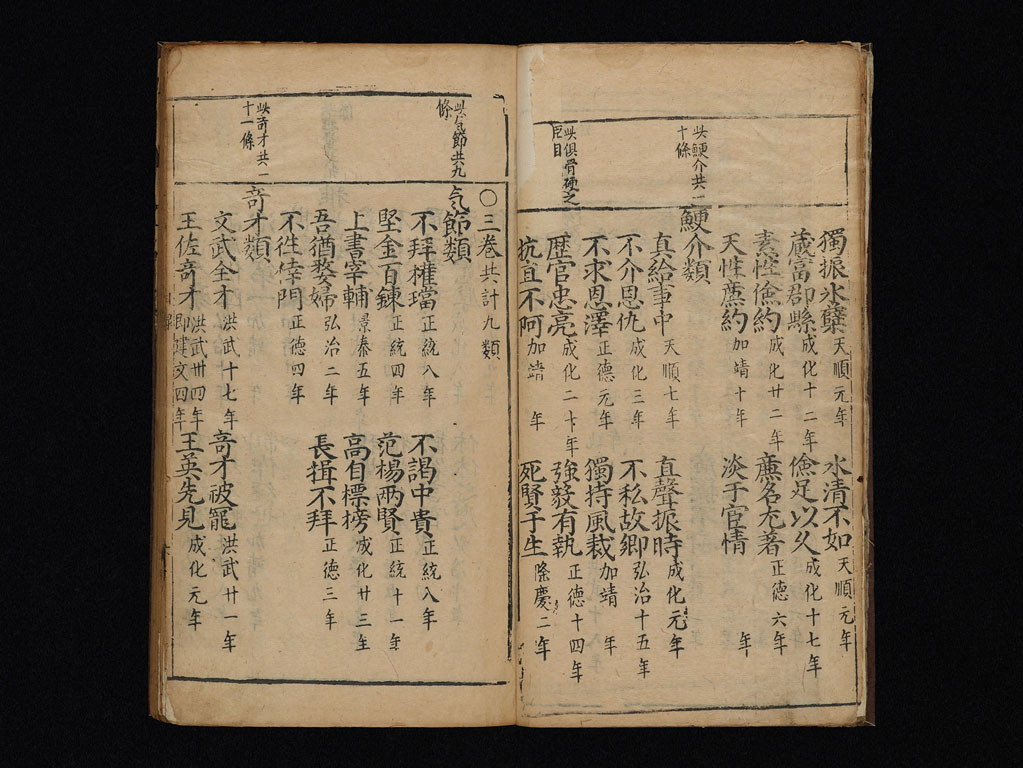 獨振氷蘗 天順元年 水清不如 天順元年
歳富郡縣 成化十二年 儉足以久 成化十七年
素性儉約 成化廿二年 廉名尤著 正德六年
天性廉約 加靖十年 淡于宦情 年
此鯁介共一
十條
鯁介類
真給事中 天順七年 直聲振時 成化元年
不介恩仇 成化三年 不私故卿 弘治十五年
不求恩澤 正德元年 獨持風裁 加靖 年
歷官忠亮 成化二十年 強毅有執 正德十四年
抗直不阿 加靖 年 死賢于生 隆慶二年
此俱骨硬之
臣目
〇三卷共計九類
此气節共九
條
气節類
不拜權璫 正統八年 不謁中貴 正統八年
堅金百鍊 正統四年 范楊兩賢 正統十一年
上書宰輔 景泰五年 高自標榜 成化廿三年
吾猶婺婦 弘治二年 長揖不拜 正德三年
不徃倖門 正德四年
此竒才共一
十一條
竒才類
文武全才 洪武十七年 竒才被寵 洪武廿一年
王佐竒才 洪武卅四年即建文四年 王英先見 成化元年